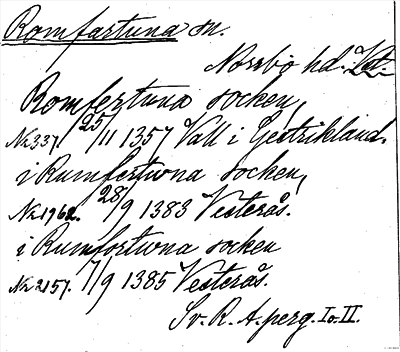 Romfartuna sn.
Norrbo hd.
Romfertuna socken,
No 337. 25/11 1357 Vall i Gestrikland.
i Rumfertwna socken,
No 1962. 28/9 1383 Vesterås.
i Rumfortwna socken
No 2157. 7/9 1385 Vesterås.
Sv. R. A. perg. I o. II.